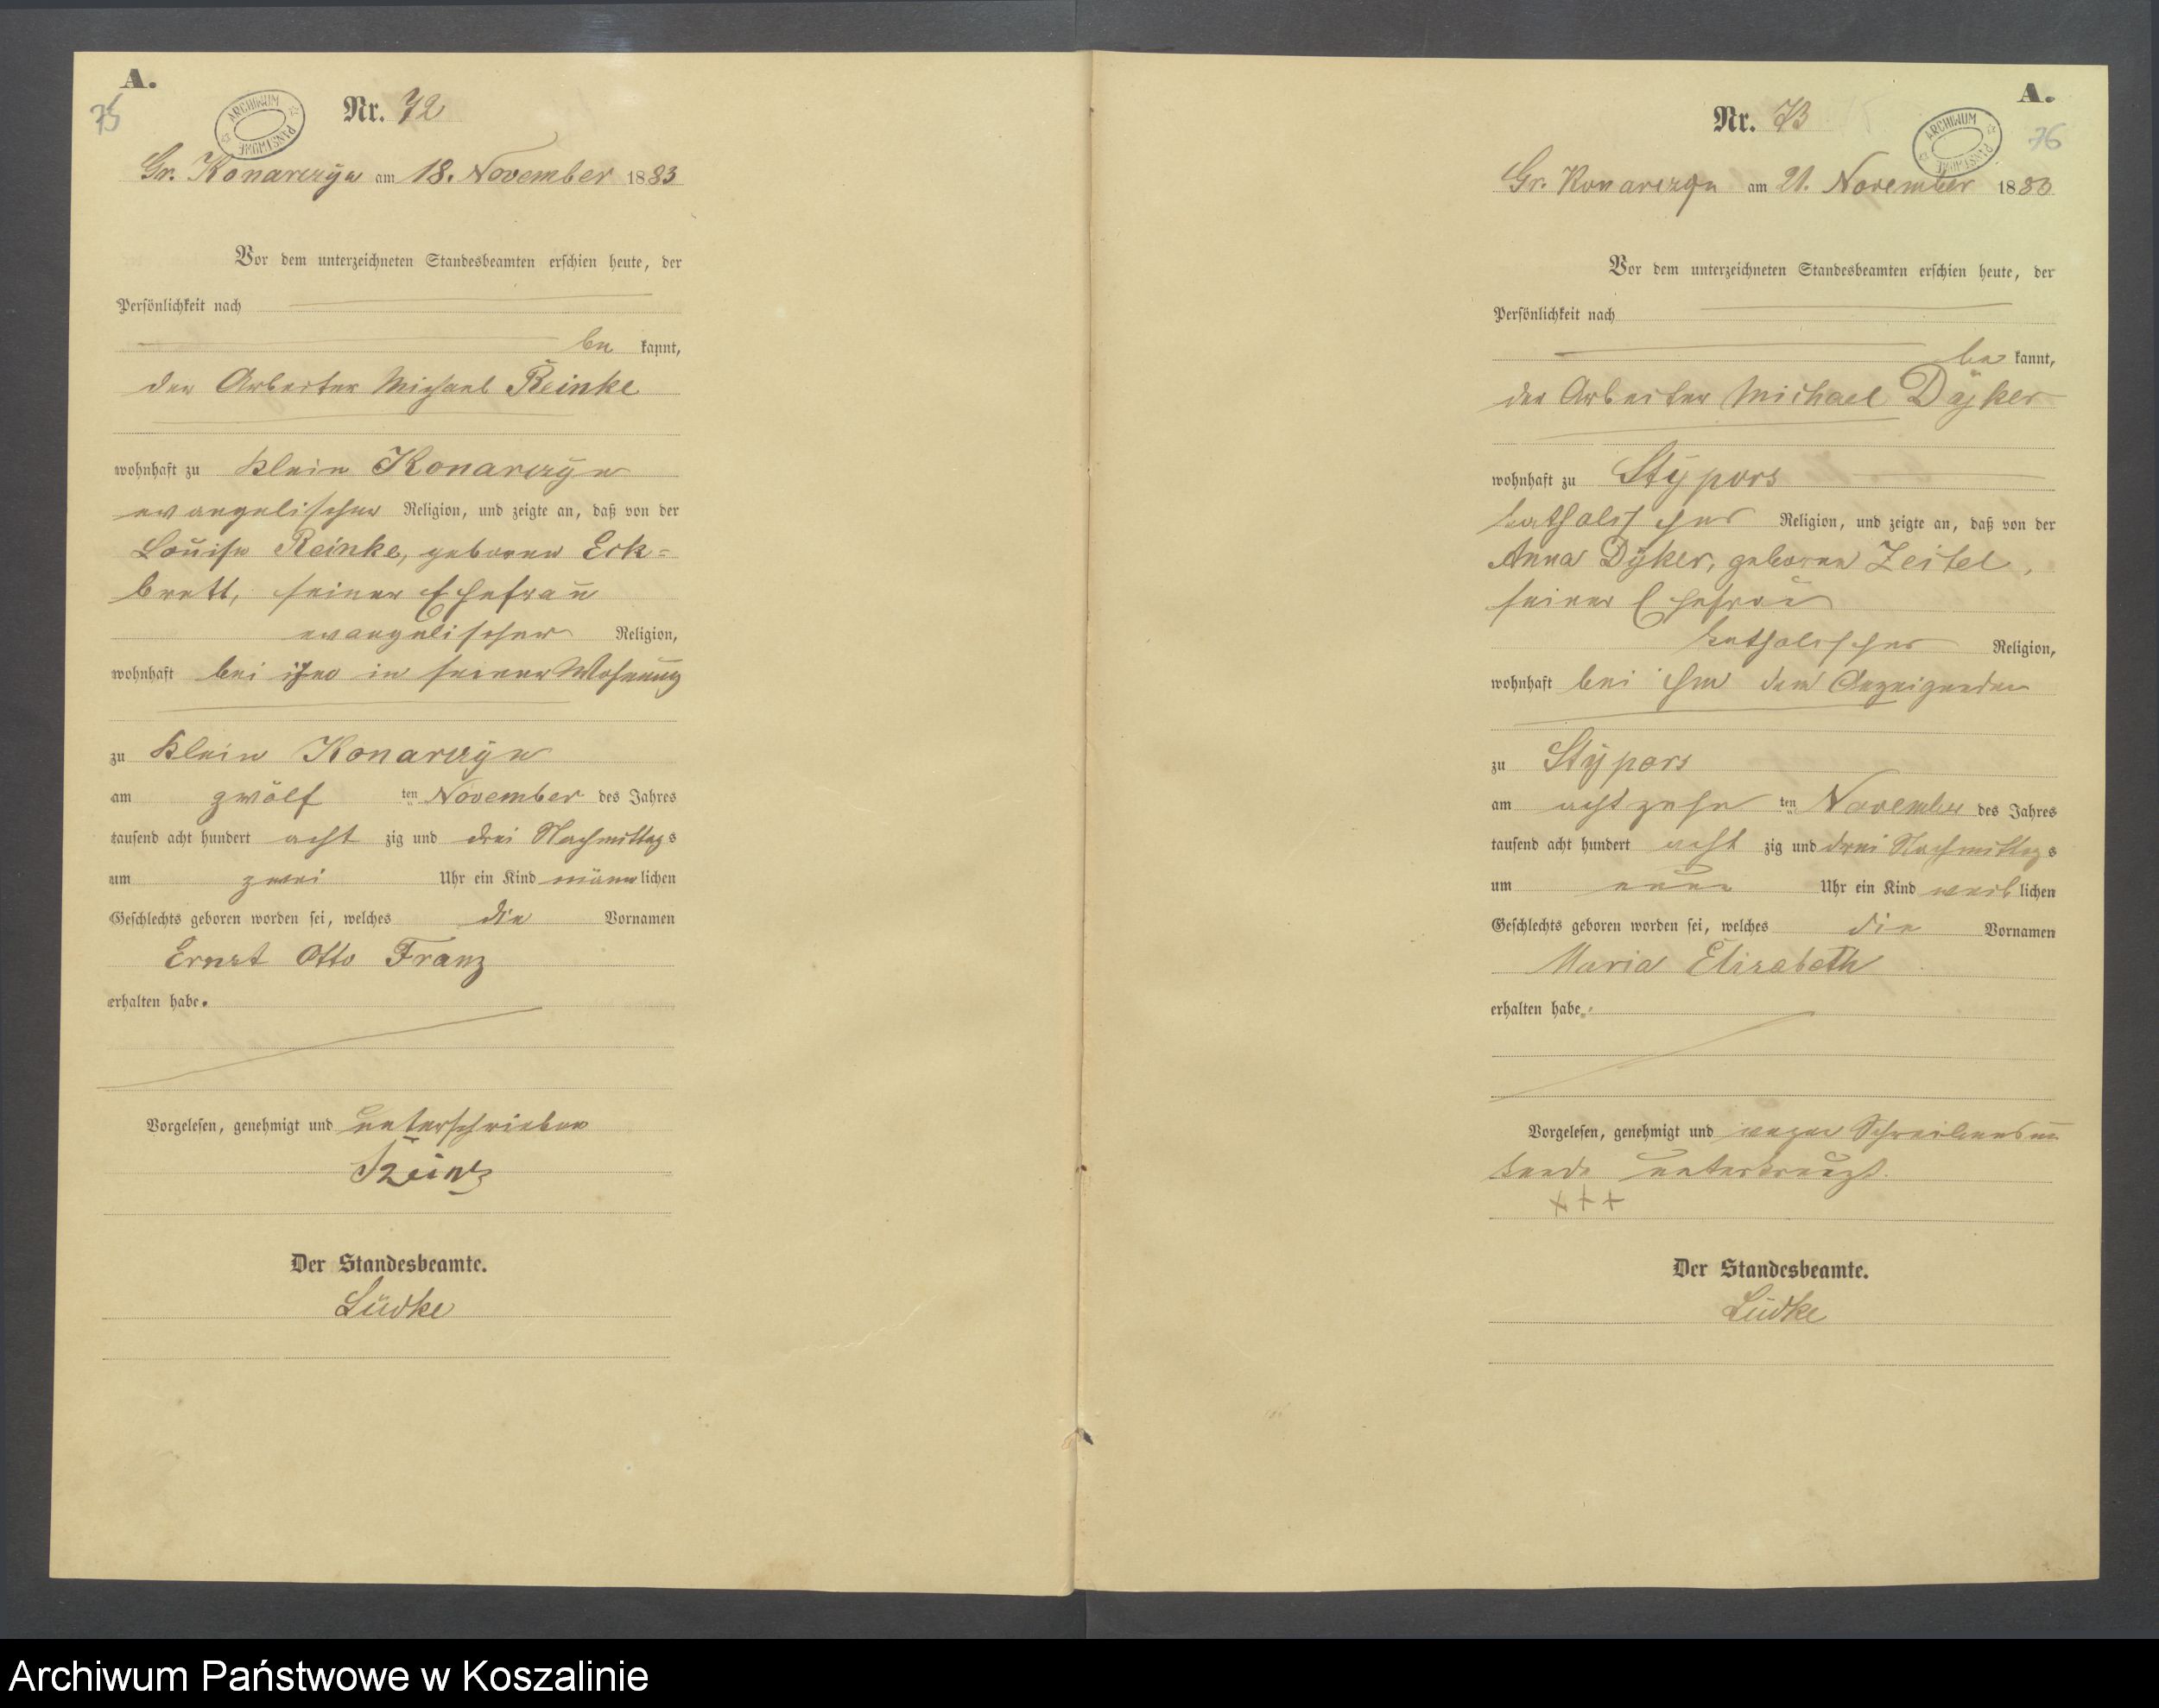 A.
75
ARCHIWUM PAŃSTWOWE
Nr. 72
Gr. Konarczyn am 18. November 1883
Vor dem unterzeichneten Standesbeamten erschien heute, der
Persönlichkeit nach
be kannt,
der Arbeiter Michael Reinke
wohnhaft zu Klein Konarczyn
evangelischer Religion, und zeigte an, daß von der
Louise Reinke, geborene Eck=
brett, seiner Ehefrau
evangelischer Religion,
wohnhaft bei ihm in seiner Wohnung
zu Klein Konarczyn
am zwölf ten November des Jahres
tausend acht hundert acht zig und drei Nachmittags
um zwei Uhr ein Kind männlichen
Geschlechts geboren worden sei, welches die Vornamen
Ernst Otto Franz
erhalten habe.
Vorgelesen, genehmigt und unterschrieben
Der Standesbeamte.
Lüdke
A.
76
ARCHIWUM PAŃSTWOWE
Nr. 73
Gr. Konarczyn am 21. November 1883
Vor dem unterzeichneten Standesbeamten erschien heute, der
Persönlichkeit nach
be kannt,
der Arbeiter Michael Dÿker
wohnhaft zu Stÿpors
katholischer Religion, und zeigte an, daß von der
Anna Dÿker, geborene Zeitel,
seiner Ehefrau
katholischer Religion,
wohnhaft bei ihm dem Anzeigenden
zu Stÿpors
am achtzehn ten November des Jahres
tausend acht hundert acht zig und drei Nachmittags
um neun Uhr ein Kind weiblichen
Geschlechts geboren worden sei, welches die Vornamen
Maria Elisabeth
erhalten habe.
Vorgelesen, genehmigt und wegen Schreibensun
kunde unterkreuzt.
+++
Der Standesbeamte.
Lüdke
Archiwum Państwowe w Koszalinie